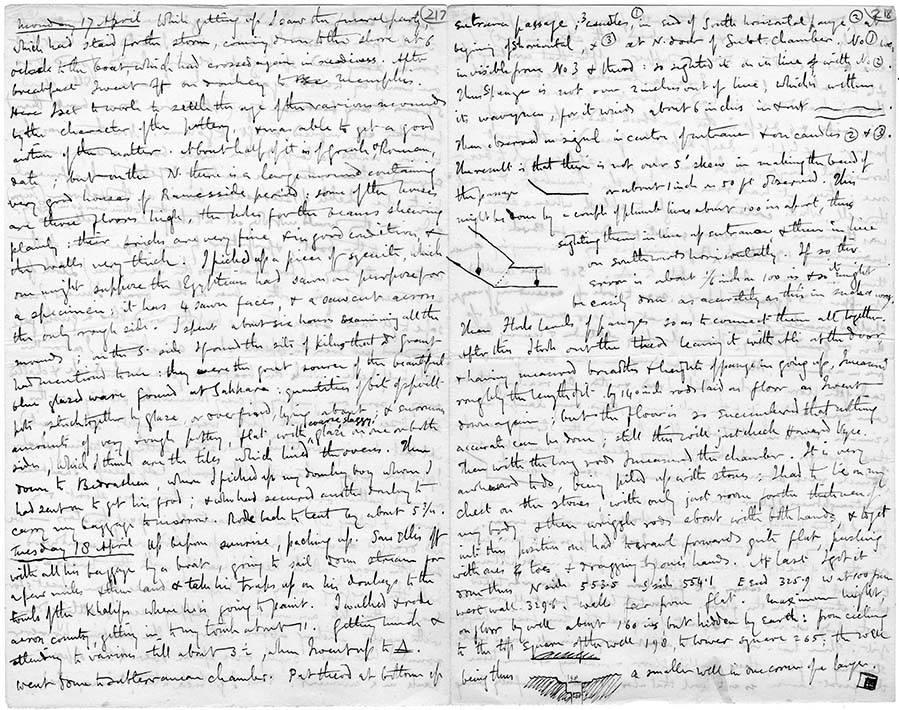 217
Monday 17 April While getting up I saw the funeral party
which had staid for the storm, coming down to the shore at 6
oclock to the boat, which had crossed again in readiness. After
breakfast I went off on donkey to Memphis.
Here I set to work to settle the age of the various mounds
by the character of the pottery, & was able to get a good
notion of the matter. About half of it is of Greek & Roman
date; but on the N. there is a large mound containing
very good houses of Ramesside period; some of the houses
are three floors high, the holes for the beams shewing
plainly: their bricks are very fine & in good condition, &
the walls very thick. I picked up a piece of syenite, which
one might suppose the Egyptians had sawn on purpose for
a specimen; it has 4 sawn faces, & a saw cut across
the only rough side. I spent about six hours examining all the
mounds; on the S. side I found the site of kilns that Dr Grant
had mentioned to me: they were the great source of the beautiful
blue glazed ware found at Sakkara: quantities of bits of spoilt
pots stuck together by glaze, or overfired, lying about; & enormous
amounts of very rough pottery, flat, with coarse slaggy glaze on one or both
sides, which I think are the tiles which lined the ovens. Then
down to Bedrashen, where I picked up my donkey boy whom I
had sent on to get his food; & who had secured another donkey to
carry my baggage tomorrow. Rode back to tent by about 5 3/4.
Tuesday 18 April Up before sunrise, packing up. Saw Ellis off
with all his baggage by a boat, going to sail down stream for
a few miles & then land & take his traps up on his donkeys to the
tombs of the Khalifs where he is going to paint. I walked & rode
across country, getting in to my tomb about 11. Getting lunch &
attending to various till about 3 1/2, when I went up to Δ.
went down to subterranean chamber. Put thread at bottom of
218
entrance passage, & 3 candles, ① in end of South horizontal passage ②
beging of horizontal, & ③ at N. door of Subt. chamber. No ① was
invisible from No 3 & thread: so sighted it in line with No ②.
Thus passage is not over 2 inches out of line; which is within
its waviness, for it winds about 6 inches in & out
Then observed in signal in centre of entrance & on candles ② & ③.
The result is that there is not over 5' skew in making the bend of
the passage or about 1 inch in 50 ft observed. This
might be done by a couple of plumb lines about 100 in apart, thus
sighting them in line of entrance & then in here
on southwards horizontally. If so the
error is about 1/7 inch in 100 is & so it might
be easily done as accurately as this in similar way.
Then I took levels of passages so as to connect them all together.
After this I took out the thread leaving it with Ali at the door,
& having measured breadths & heights of passage in going up, I measured
roughly the length of it by 140 inch rods laid on floor as I went
down again; but the floor is so encumbered that nothing
accurate can be done; still this will just check
Then with the long rods I measured the chamber. It is very
awkward to do, being piled up with stones; I had to lie on my
chest on the stones, with only just room for the thickness of
my body & then wriggle rods about with both hands, & to get
into this position one had to crawl forwards quite flat, pushing
with ones toes & dragging by ones hands. At last I got it
done thus N side 553.5 S side 554.1 E end 325.9 W at 100 from
west wall 329.6. Wall far from flat. Maximum height
on floor by well about 160 is but hidden by earth: from ceiling
to the top square of the well 198, to lower square 265, the well
being thus a smaller well in one corner of a larger.